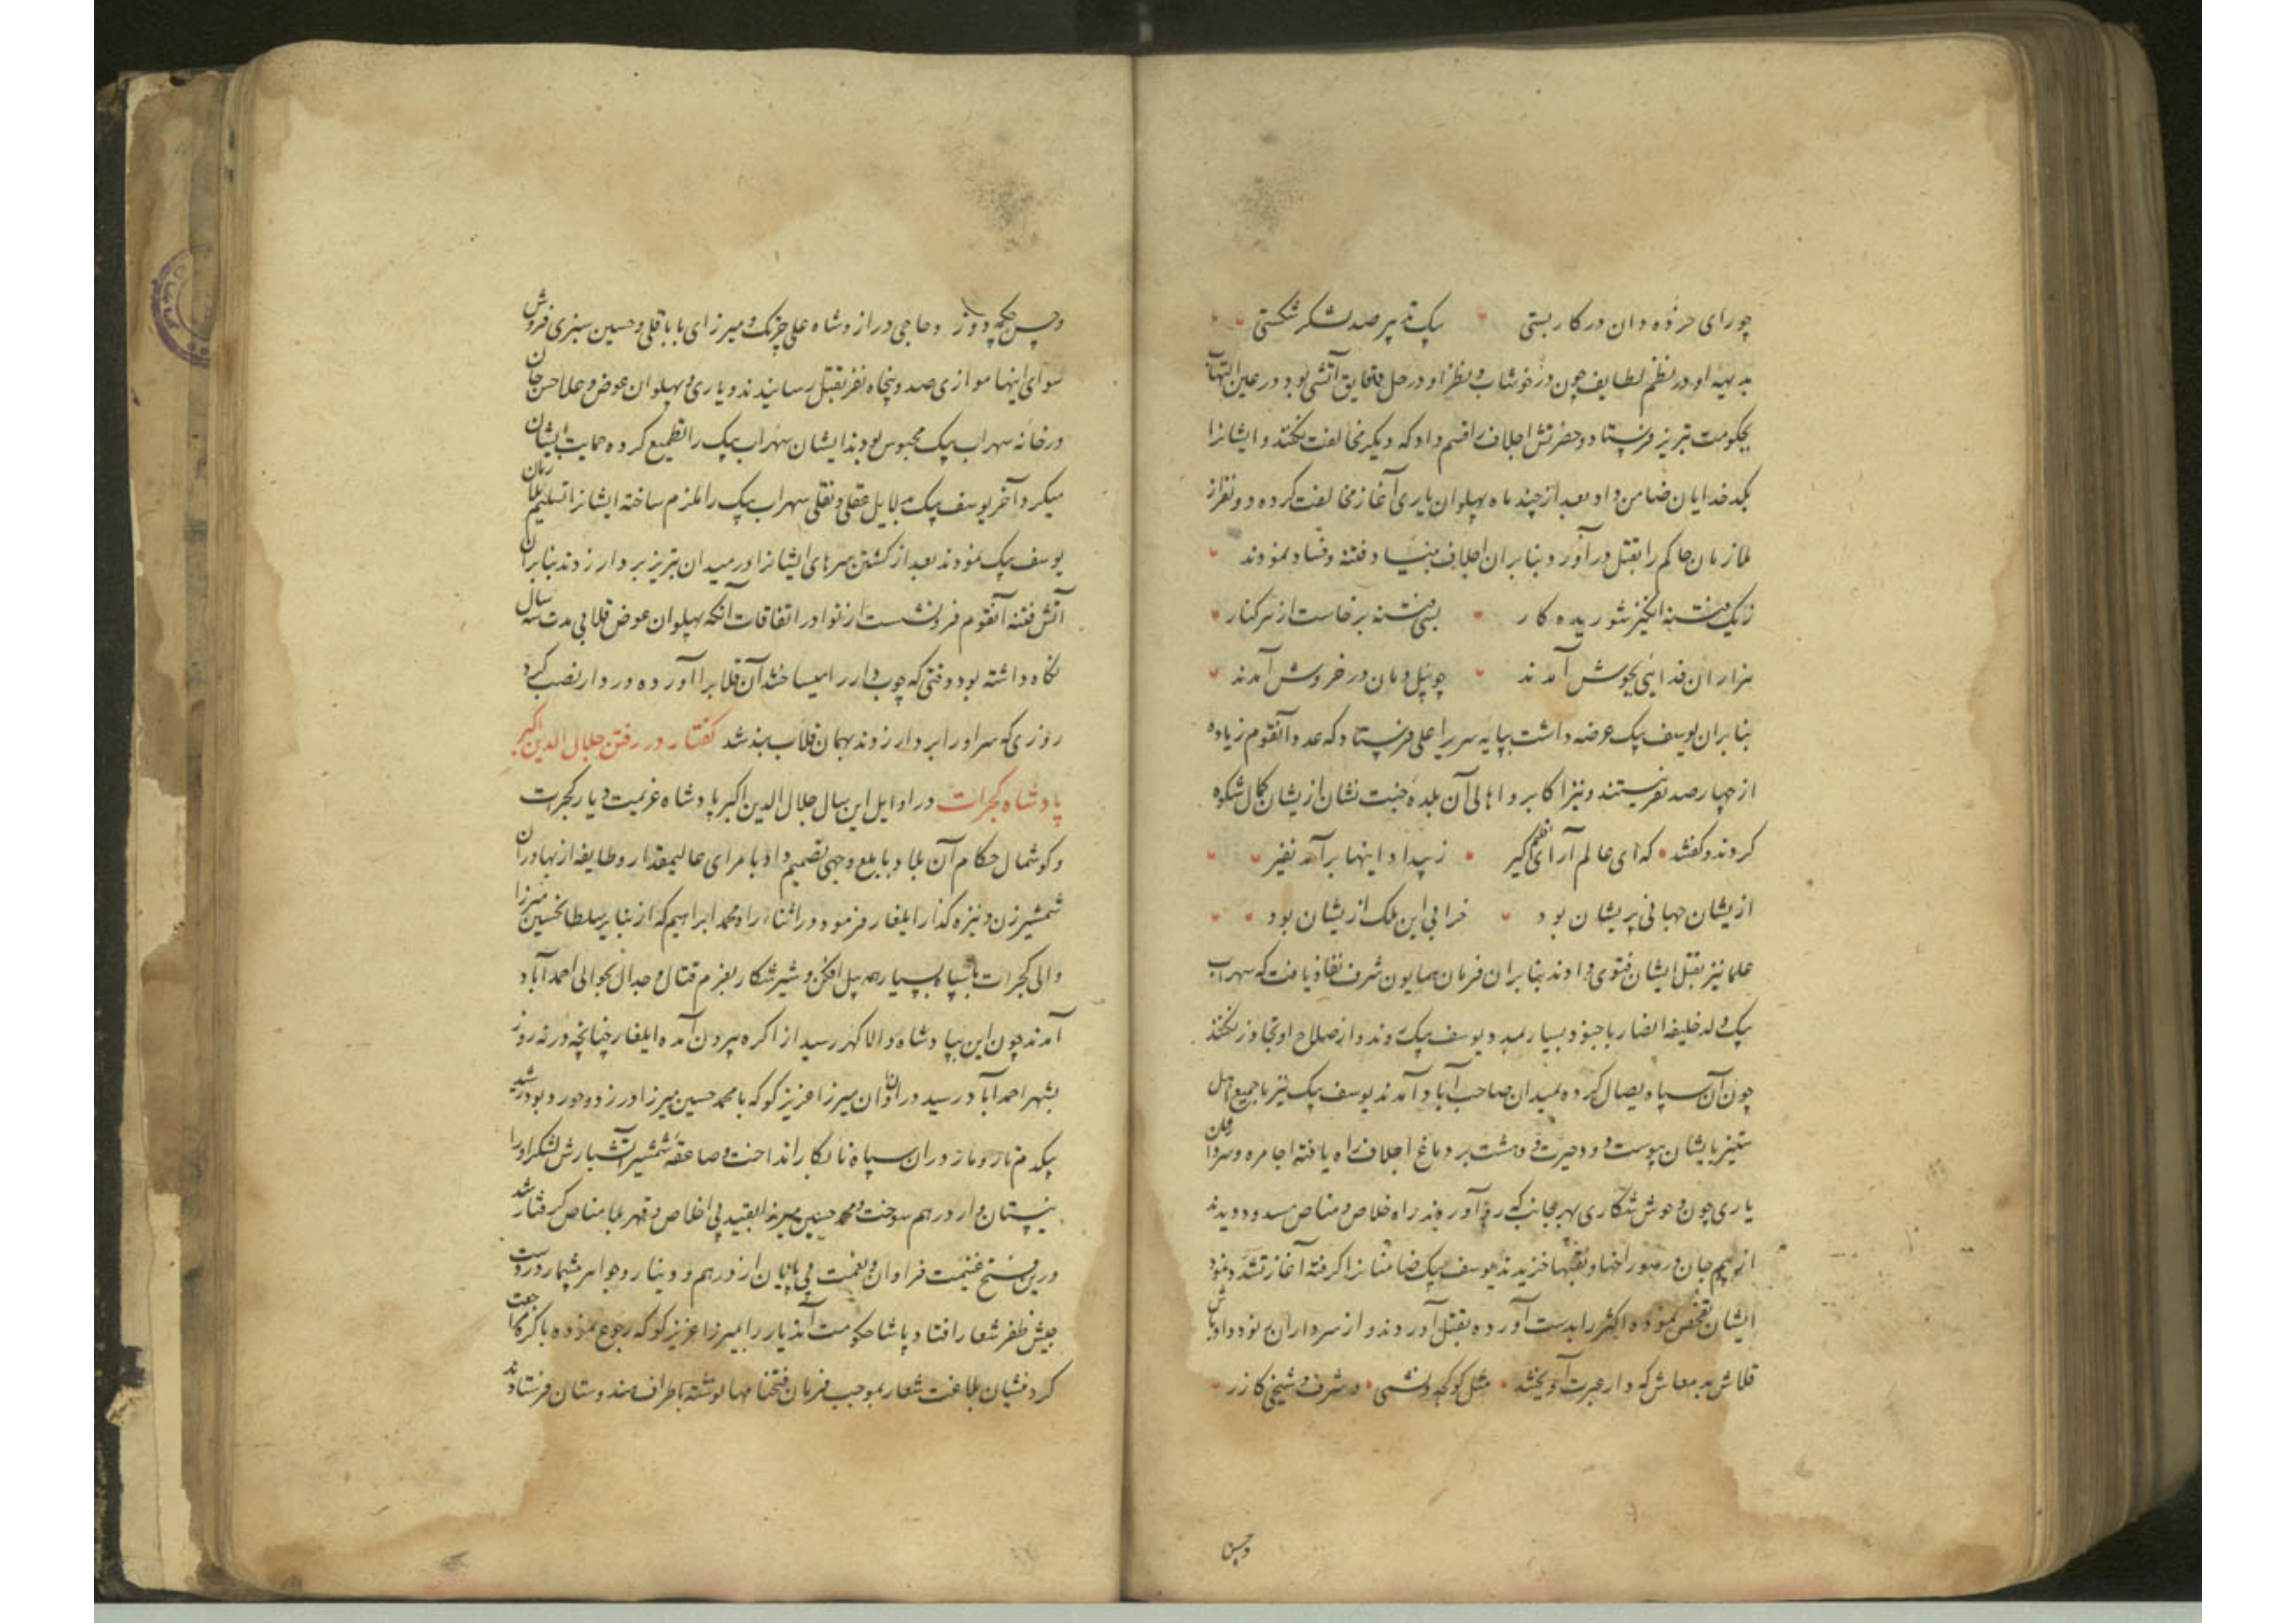 چو رای خرده دان در کار بستی یک تدبیر صد لشکر شکستی
بدیهه او در نظم لطایف چون در خوشاب و نظر او در حل دقایق آتشی بود در عین التهاب
بحکومت تبریز فرستاد و حضرتش اجلاف را قسم داد که دیگر مخالفت نکنند و ایشانرا
بکدخدایان ضامن داد بعد از چند ماه پهلوان یاری آغاز مخالفت کرده دو نفر از
ملازمان حاکم را بقتل در آورد بنا بران اجلاف بنیاد فتنه و فساد نمودند
ز یک فتنه انگیز شوریده کار بسی فتنه برخاست از هر کنار
هزاران فدایی بجوش آمدند چو پیل دمان در خروش آمدند
بنا بران یوسف بیک عرضه داشت بپایه سریر اعلی فرستاد که عدد آنقوم زیاده
از چهار صد نفر نیستند و نیز اکابر و اهالی آن بلده جنت نشان ازیشان کمال شکوه
کردند و گفتند که ای عالم آرای گیر ز بیداد اینها برآمد نفیر
ازیشان جهانی پریشان بود خرابی این ملک ازیشان بود
علما نیز بقتل ایشان فتوی دادند بنا بران فرمان همایون شرف نفاذ یافت که سهراب
بیک ولد خلیفه انصار با جنود بسیار بمدد یوسف بیک روند و از صلاح او تجاوز نکنند
چون آن سپاه یصال کرده بمیدان صاحب آباد آمدند یوسف بیک نیز با جمیع اهل
ستیز بایشان پیوست و حیرت و دهشت بر دماغ اجلاف راه یافته اجامره و سردارن
یاری چون وحوش شکاری بهر جانب که رو آوردند راه خلاص و مناص مسدود دیدند
از بیم جان در سوراخها و نقبها خزیدند یوسف بیک ضامنانرا گرفته آغاز تشدد نمود
ایشان تفحص نموده اکثر را بدست آورده بقتل آوردند و از سرداران نود اوباش
قلاش بد معاش که دار عبرت آویختند مثل کوکچه و شمی و شرف و شیخی کازر
وحسن
و حسن چکمه دوز و حاجی دراز و شاه علی چرتک و میرزای بابا قلی و حسین سبزی فروش
سوای اینها موازی صد و پنجاه نفر بقتل رسانیدند و یاری و پهلوان عوض و علا حسن جان
در خانه سهراب بیک محبوس بودند ایشان سهراب بیک را تطمیع کرده حمایت ایشان
میکرد آخر یوسف بیک بدلایل عقلی و نقلی سهراب بیک را ملزم ساخته ایشانرا تسلیم ملازمان
یوسف بیک نمودند بعد از کشتن سرهای ایشانرا در میدان تبریز بر دار زدند بنا بران
آتش فتنه آنقوم فرو نشست از نوادر اتفاقات آنکه پهلوان عوض قلابی مدت سه سال
نگاه داشته بود وقتی که چوب دار را میساختند آن قلابرا آورده در دار نصب کرد
روزی که سر او را بر دار زدند بهمان قلاب بند شد گفتار در رفتن جلال الدین اکبر
پادشاه گجرات در اوایل این سال جلال الدین اکبر پادشاه عزیمت دیار گجرات
و گوشمال حکام آن بلاد بابلغ وجهی تصمیم داد با مرای عالیمقدار و طایفه از بهادران
شمشیر زن و نیزه گذار ایلغار فرمود در اثنا راه محمد ابراهیم که از نبایر سلطان حسین میرزا
والی گجرات با سپاه بسیار همه پیل افکن و شیر شکار بعزم قتال و جدال بحوالی احمد آباد
آمدند چون این بپادشاه والا گهر رسید از آکره بیرون آمده ایلغار چنانچه در نه روز
بشهر احمد آباد رسید در آن اوان میرزا عزیز کوکه با محمد حسین میرزا در زد و خورد بود
بیکدم مار و مار در ان سپاه نابکار انداخت و صاعقه شمشیر آتشبارش لشکر او را
نیستان وار در هم سوخت و محمد حسین میرزا بقید بی اخلاص و قهر بلا مناص گرفتار شد
درین فتح غنیمت فراوان و نعمت بی پایان از درهم و دینار و جواهر بیشمار در دست
جیش ظفر شعار افتاد پادشاه حکومت آندیار را بمیرزا عزیز کوکه رجوع نموده باکره مراجعت
کرد منشیان بلاغت شعار بموجب فرمان فتحنامها نوشته باطراف هندوستان فرستادند